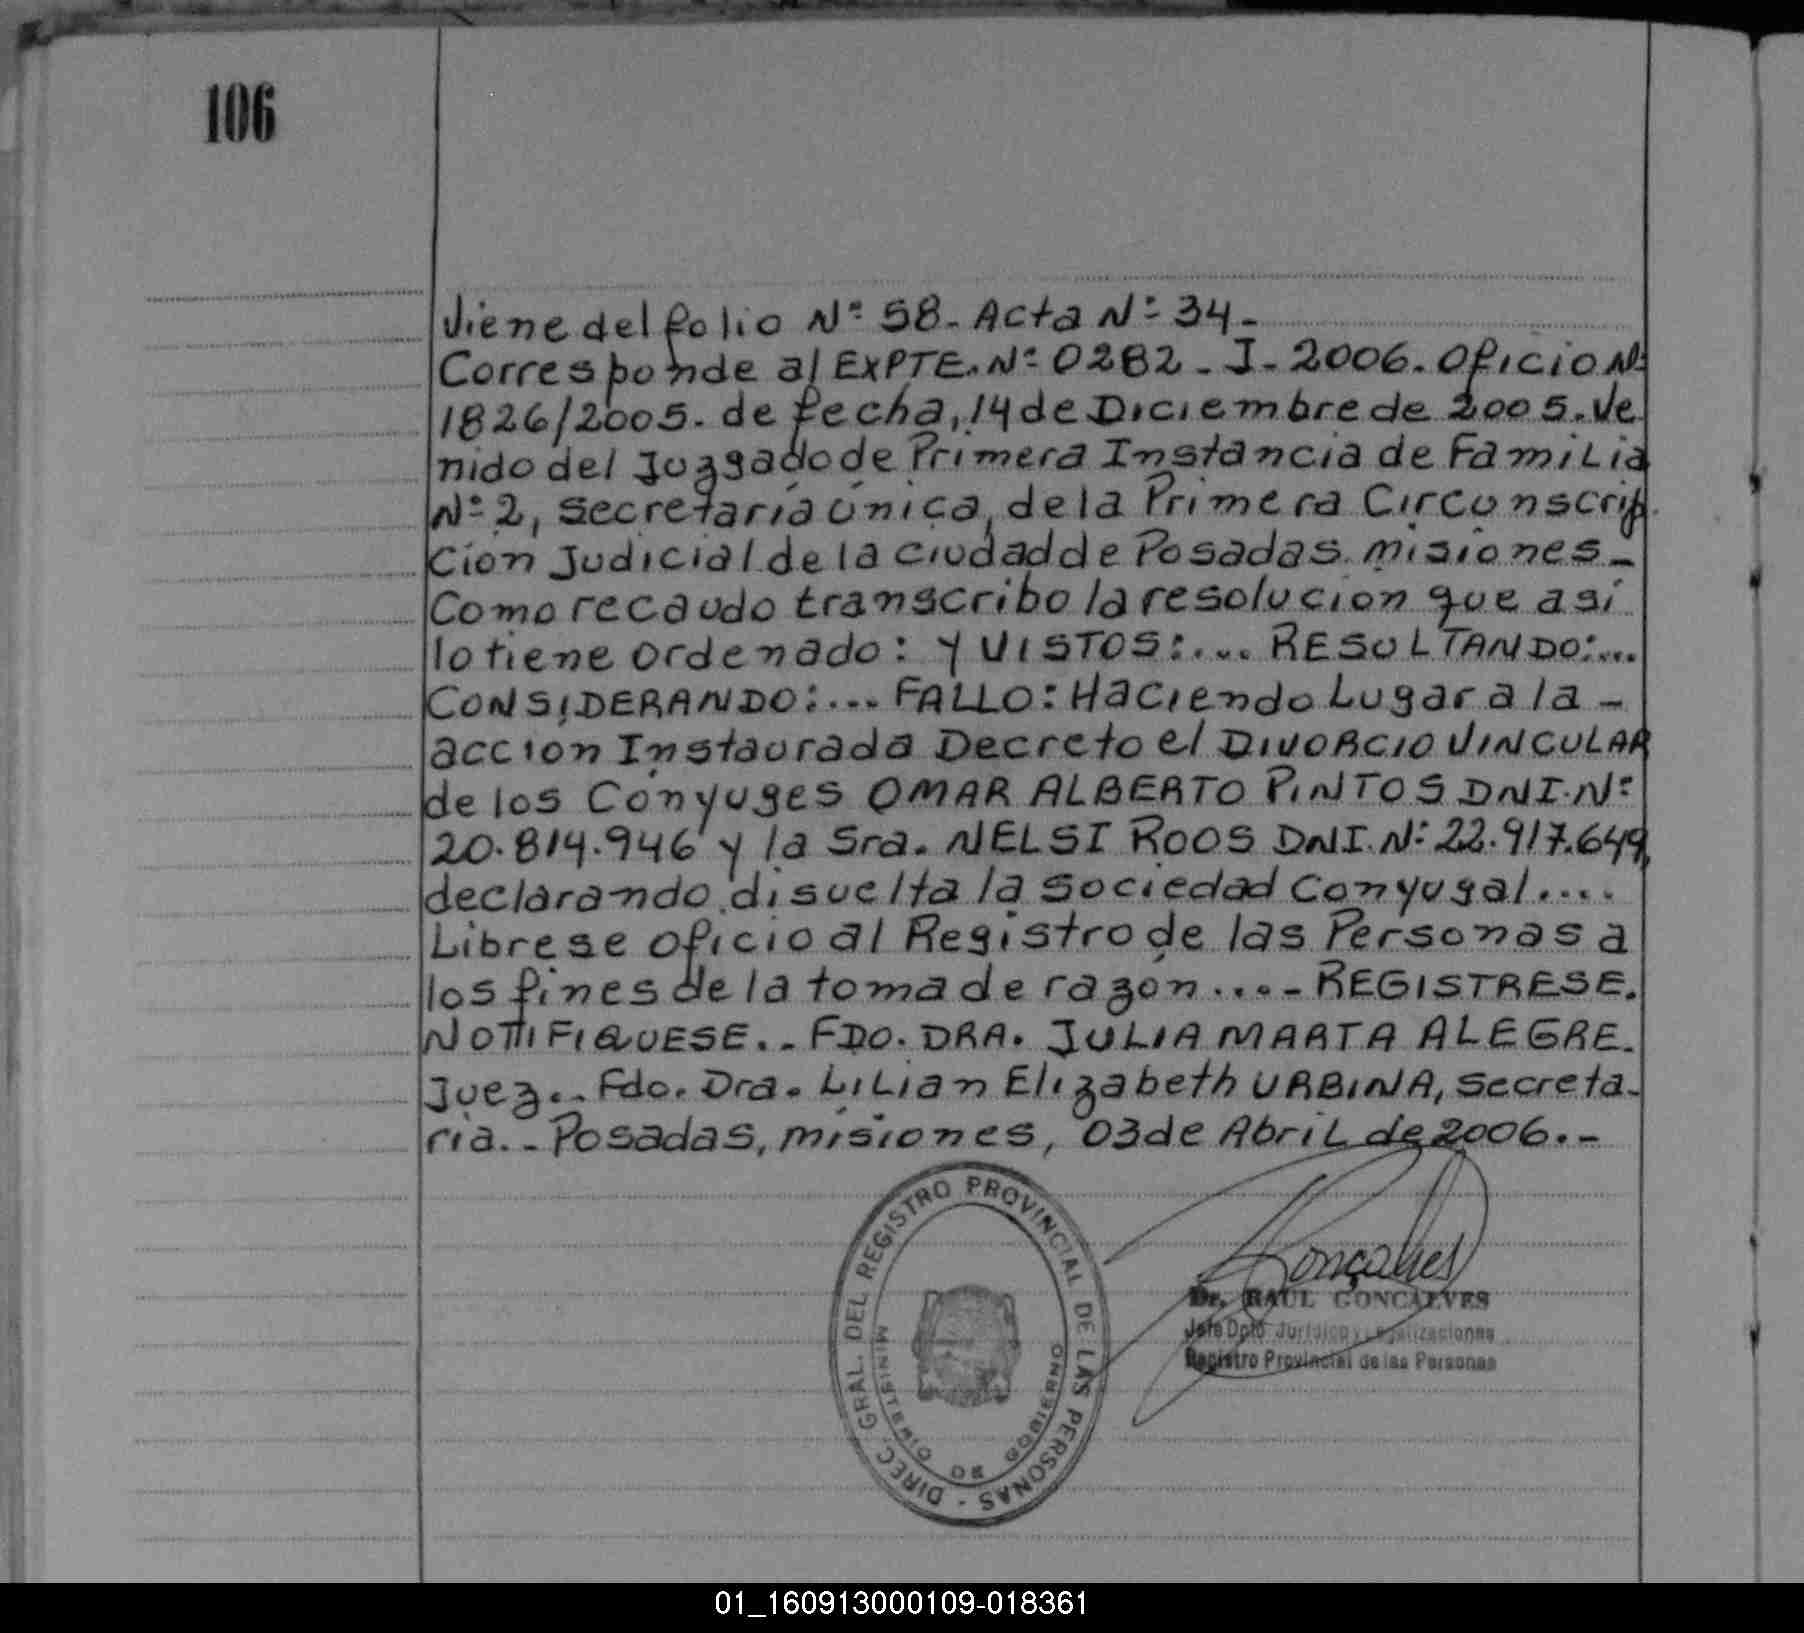 106
Viene del folio Nº 58. Acta Nº 34.
Corresponde al EXPTE. Nº 0282 - J - 2006. Oficio Nº
1826/2005. de fecha, 14 de Diciembre de 2005. Ve
nido del Juzgado de Primera Instancia de Familia
Nº 2, Secretaría única, de la Primera Circunscrip
ción Judicial de la ciudad de Posadas. misiones_
Como recaudo transcribo la resolución que así
lo tiene ordenado: Y VISTOS:... RESULTANDO:...
CONSIDERANDO:... FALLO: Haciendo Lugar a la -
acción Instaurada Decreto el DIVORCIO VINCULAR
de los Conyuges OMAR ALBERTO PINTOS DNI. Nº
20.814.946 y la Sra. NELSI ROOS DNI. Nº 22.917.649,
declarando disuelta la sociedad Conyugal....
Librese oficio al Registro de las Personas a
los fines de la toma de razón....- REGISTRESE.
NOTIFIQUESE.- FDO. DRA. JULIA MARTA ALEGRE.
Juez.- Fdo. Dra. LiLian Elizabeth URBINA, Secreta-
ria.- Posadas, misiones, 03 de Abril de 2006.-
DIREC. GRAL. DEL REGISTRO PROVINCIAL DE LAS PERSONAS -
MINISTERIO DE GOBIERNO
Gonçalves
Dr. RAUL GONCALVES
Jefe Dpto Jurídico y Legalizaciones
Registro Provincial de las Personas
01_160913000109-018361